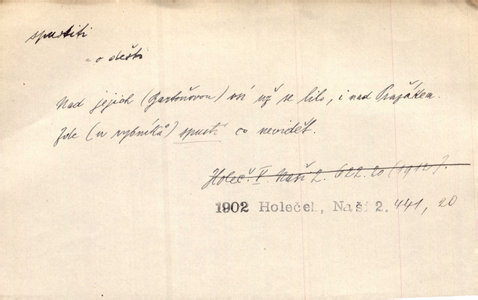 spustiti
- o dešti
Nad jejich (Bartoňovou) vsí už se lilo, i nad Pražákem.
Zde (u rybníků) spustí co nevidět.
Holeč. V. Naši 2. 622. 20 (1912).
1902 Holeček, Naši 2. 441, 20